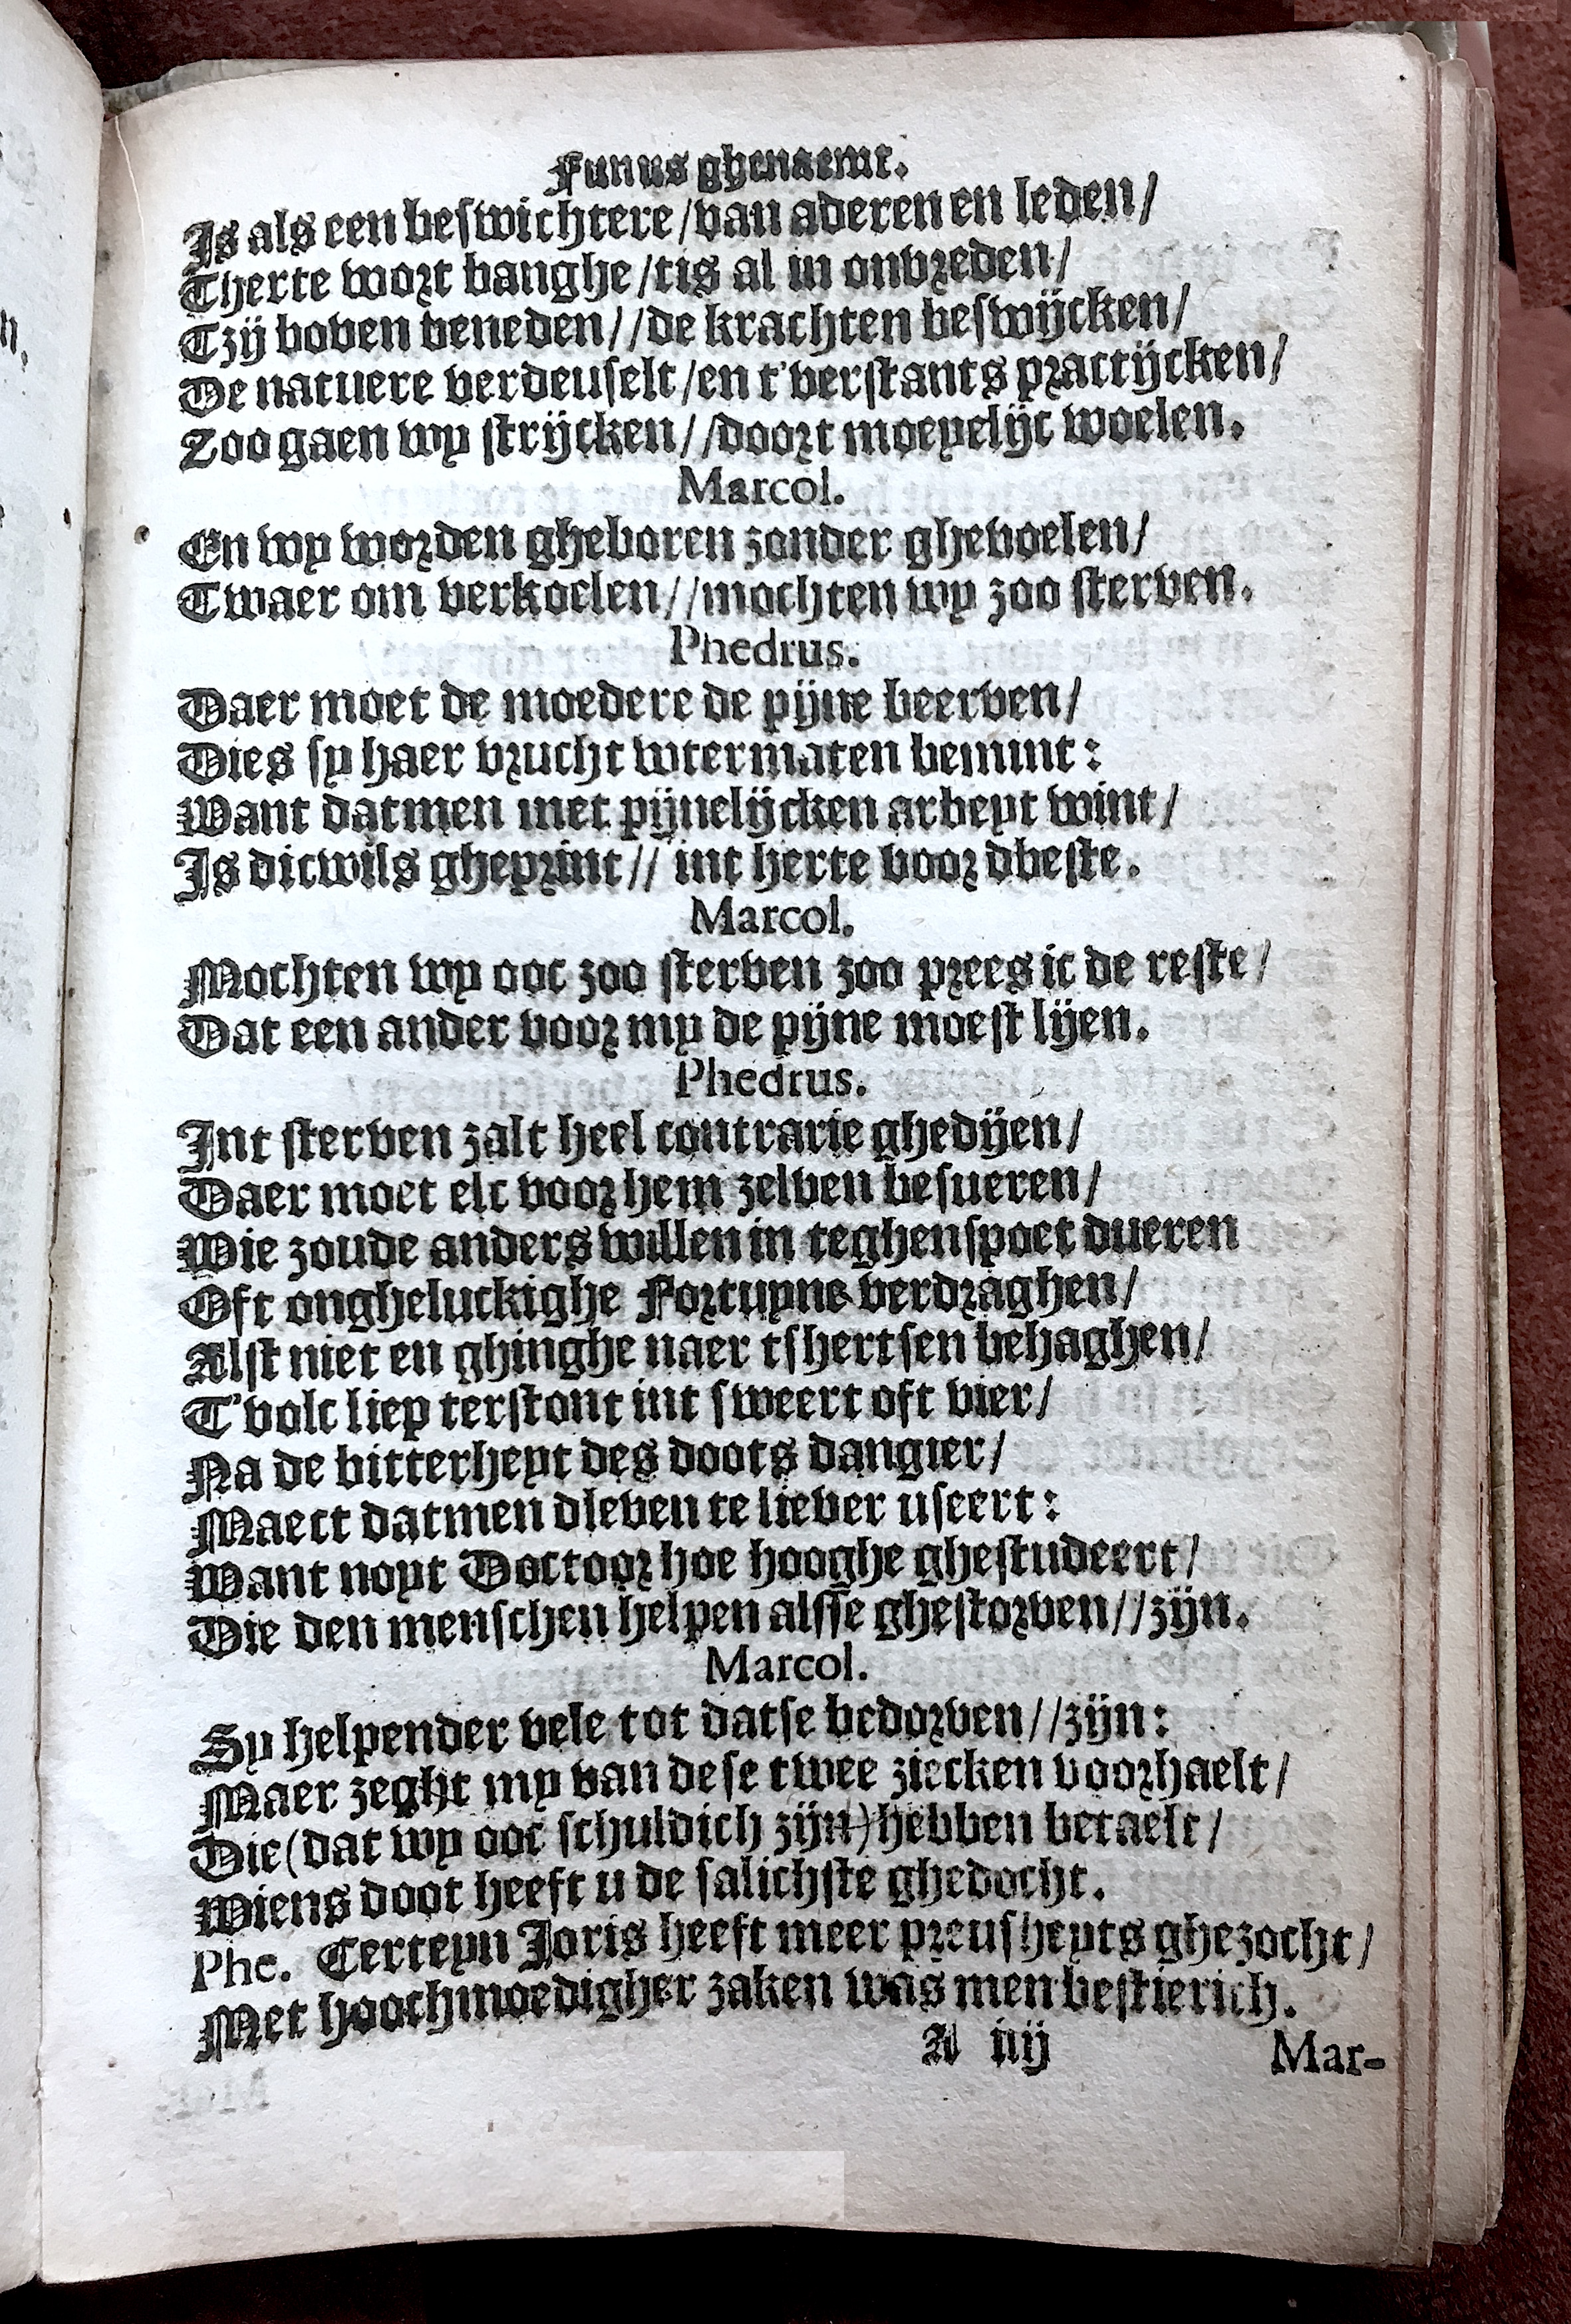 Funus ghenaemt.
Is als een beswichtere/van aderen en leden/
Therte wort banghe/tis al in onvreden/
Tzy boven beneden//de krachten beswijcken/
De natuere verdeuselt/en t'verstants practijcken/
Zoo gaen wy strijcken//doort moeyelijc woelen.
Marcol.
En wy worden gheboren zonder ghevoelen/
Twaer om verkoelen//mochten wy zoo sterven.
Phedrus.
Daer moet de moedere de pijne beerven/
Dies sy haer vrucht wtermaten bemint:
Want datmen met pijnelijcken arbeyt wint/
Is dicwils gheprint// int herte voor dbeste.
Marcol.
Mochten wy ooc zoo sterven zoo prees ic de reste/
Dat een ander voor my de pijne moest lijen.
Phedrus.
Int sterven zalt heel contrarie ghedijen/
Daer moet elc voor hem zelven besueren/
Wie zoude anders willen in teghenspoet dueren
Oft ongheluckighe Fortuyne verdraghen/
Alst niet en ghinghe naer tshertsen behaghen/
T'volc liep terstont int sweert oft vier/
Na de bitterheyt des doots dangier/
Maect datmen dleven te liever useert:
Want noyt Doctoor hoe hooghe ghestudeert/
Die den menschen helpen alsse ghestorven//zijn.
Marcol.
Sy helpender vele tot datse bedorven//zijn:
Maer zeght my van dese twee ziecken voorhaelt/
Die (dat wy ooc schuldich zijn) hebben betaelt/
Wiens doot heeft u de salichste ghedocht.
Phe. Certeyn Joris heeft meer preusheyts ghezocht/
Met hoochmoedigher zaken was men bestierich.
A iiij Mar-